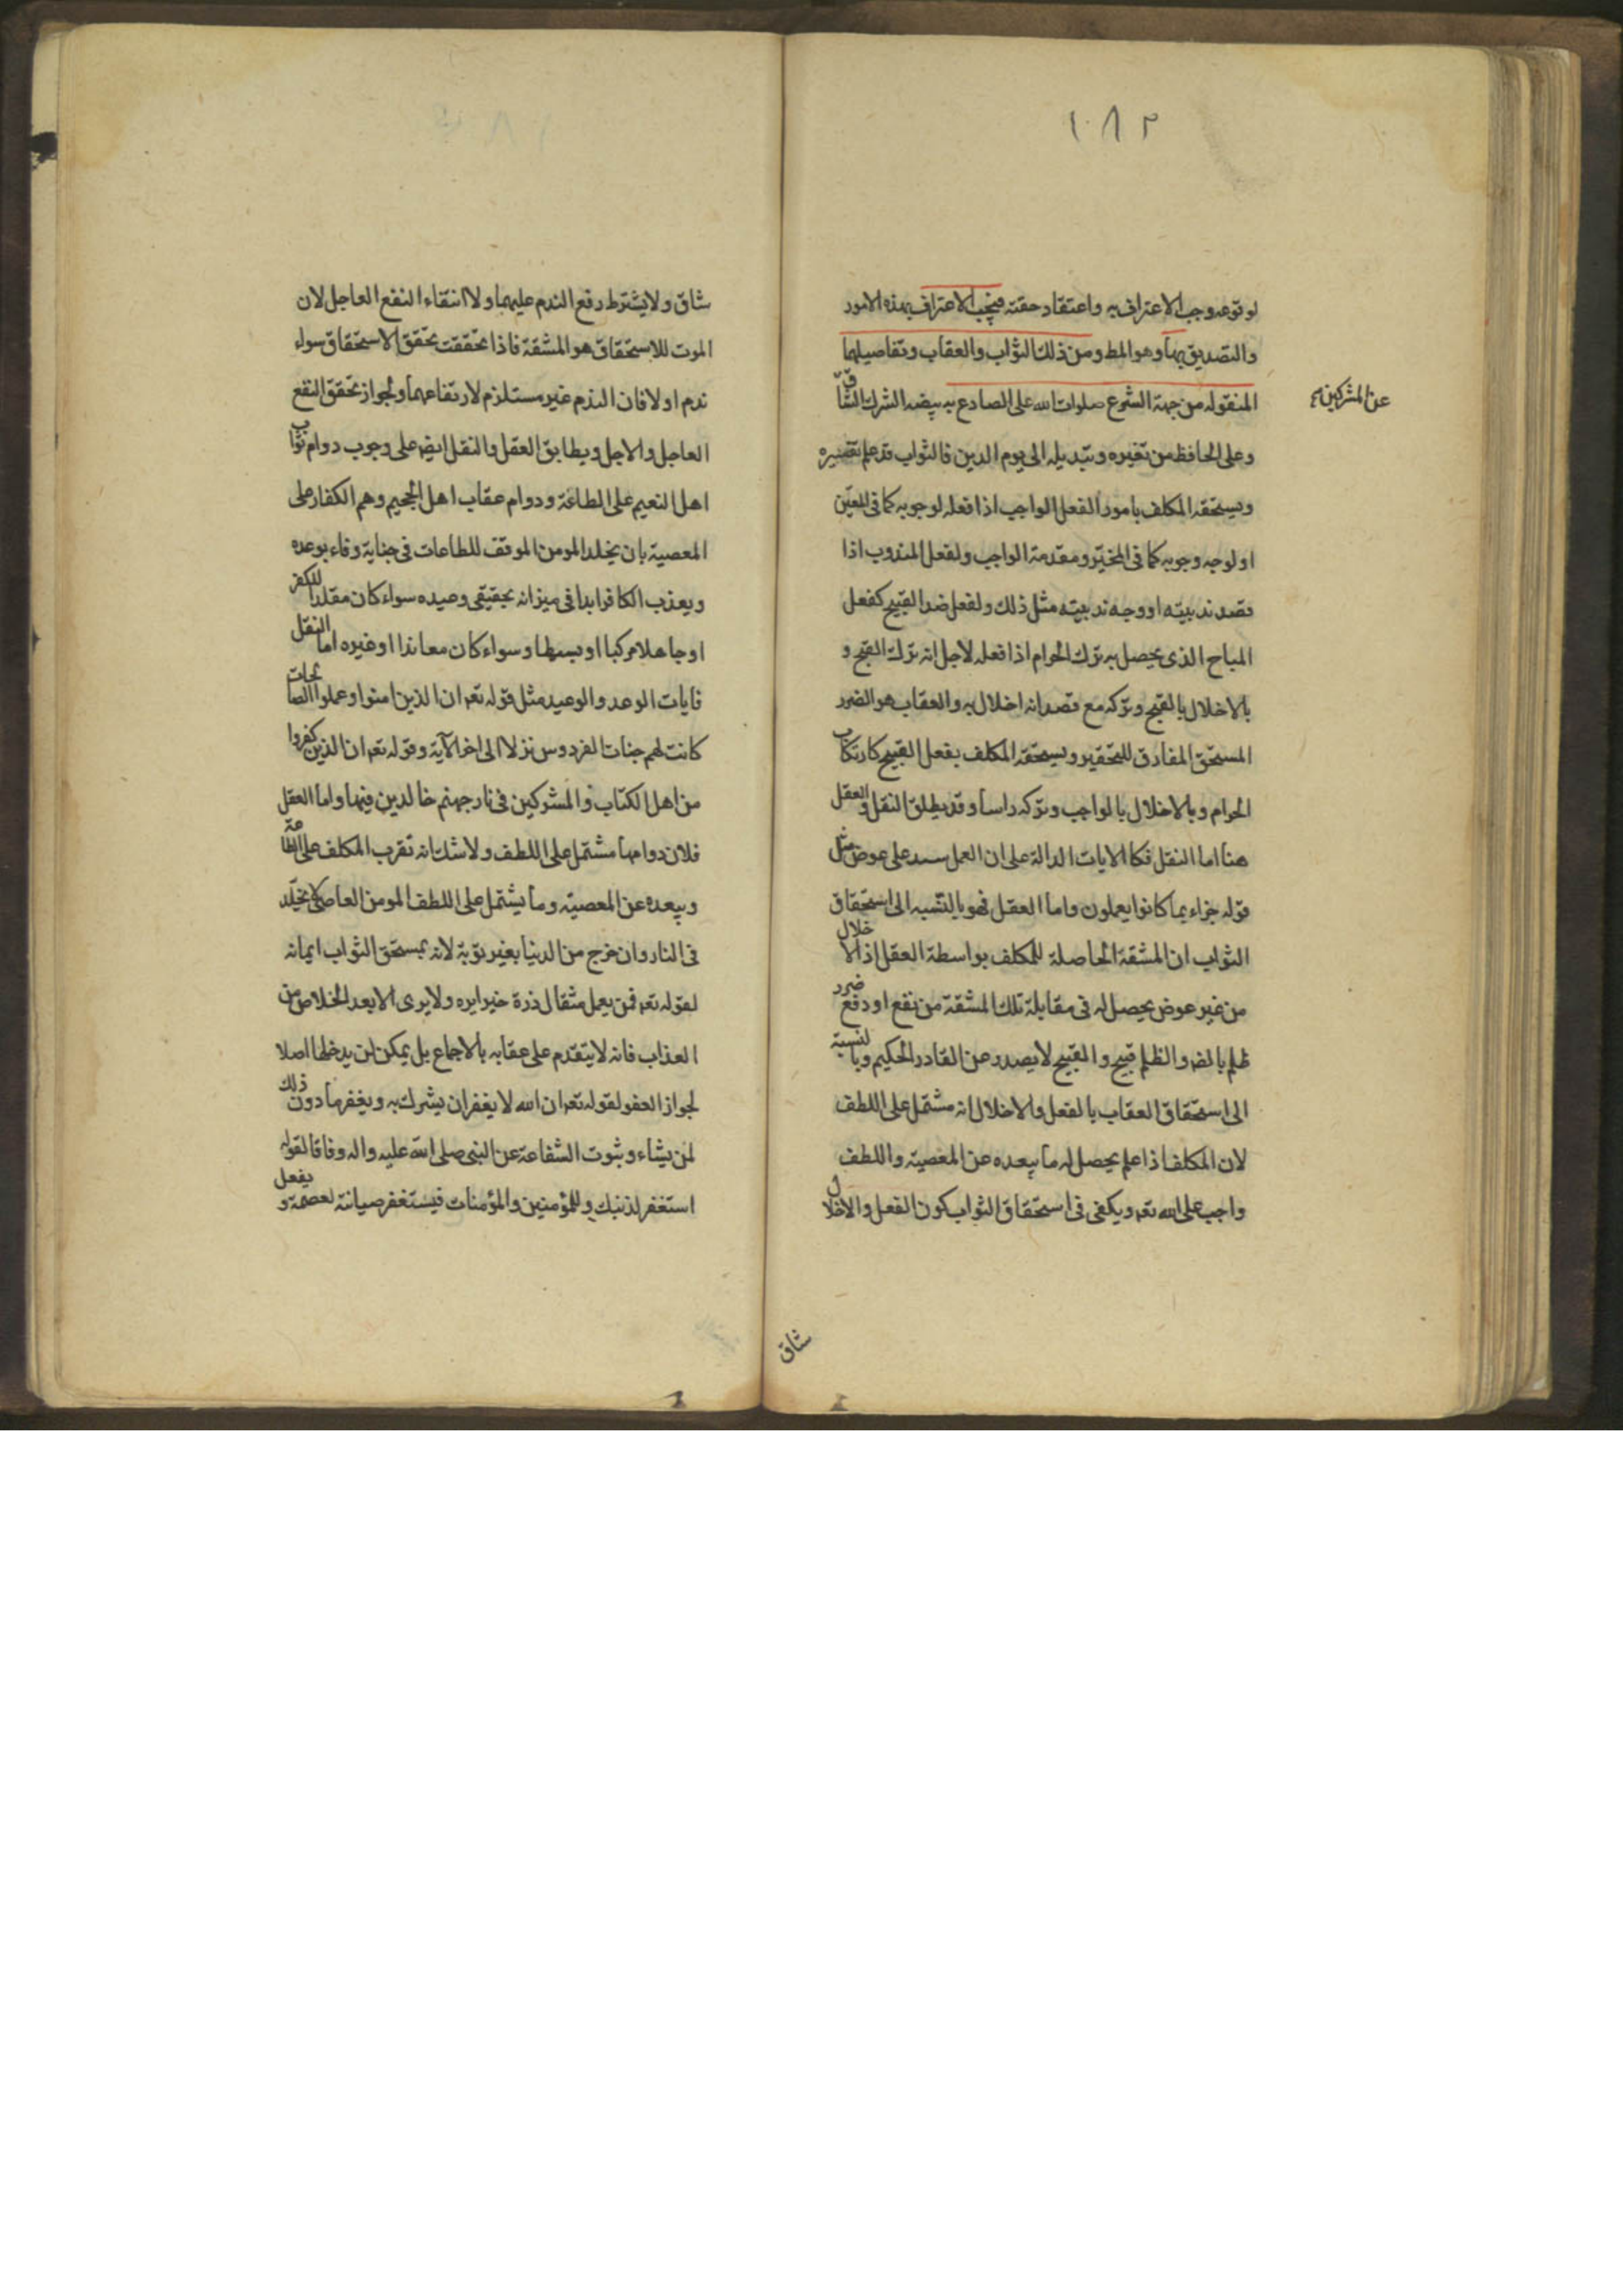 ١٨٢
لوقوعه وجب الاعتراف به واعتقاد حقته فيجب الاعتراف بهذه الامور
والتصديق بها وهو المط ومن ذلك الثواب والعقاب وتفاصيلهما
المنقوله من جهة الشرع صلوات الله على الصادع به بيضه الشرك الشاق
عن المشركين
وعلى الحافظ من تغيره وتبديله الى يوم الدين فالثواب قد علم تفسيره
ويستحقه المكلف بامور الفعل الواجب اذا فعله لوجوبه كما في المعين
او لوجه وجوبه كما في المخير ومقدمة الواجب ولفعل المندوب اذا
قصد ندبيته او وجه ندبيته مثل ذلك ولفعل ضد القبيح كفعل
المباح الذى يحصل به ترك الحرام اذا فعله لاجل انه ترك القبيح و
بالاخلال بالقبيح وتركه مع قصد انه اخلال به والعقاب هو الضرر
المستحق المقارن للتحقير ويستحقه المكلف بفعل القبيح كارتكاب
الحرام وبالاخلال بالواجب وتركه راسا وقد يطلق النقل والعقل
هنا اما النقل فكا الايات الدالة على ان العمل على عوض مثل
قوله جزاء بما كانوا يعملون واما العقل فهو بالنسبه الى استحقاق
الثواب ان المشقة الحاصلة للمكلف بواسطة العقل اذ الاخلال
من غير عوض يحصل له في مقابلة تلك المشقة من نفع او دفع ضرر
ظلم بالضر والظلم قبيح والقبيح لا يصدر عن القادر الحكيم وبالنسبة
الى استحقاق العقاب بالفعل والاخلال انه مشتمل على اللطف
لان المكلف اذا علم يحصل له ما يبعده عن المعصية واللطف
واجب على الله تعه ويكفى فى استحقاق الثواب كون الفعل والاخلال
شاق
شاق ولا يشترط رفع الندم عليهما ولا انتقاء النفع العاجل لان
الموت للاستحقاق هو المشقة فاذا تحققت تحقق الاستحقاق سواء
ندم اولا فان الندم غير مستلزم لارتفاعهما ولجواز تحقق النفع
العاجل والاجل ويطابق العقل والنقل ايضه على وجوب دوام ثواب
اهل النعيم على الطاعة ودوام عقاب اهل الجحيم وهم الكفار على
المعصية بان يخلد المومن الموفق للطاعات فى جناية وفاء بوعده
ويعذب الكافر ابدا فى ميزانه بحقيقى وعيده سواء كان مقلد الكفر
او جاهلا مركبا او بسيطا وسواء كان معاندا او غيره اما النقل
فايات الوعد والوعيد مثل قوله تعه ان الذين امنوا وعملوا الصالحات
كانت لهم جنات الفردوس نزلا الى اخر الآية وقوله تعه ان الذين كفروا
من اهل الكتاب والمشركين فى نار جهنم خالدين فيها واما العقل
فلان دوامها مشتمل على اللطف ولا شك انه تقرب المكلف على الطاعة
ويبعده عن المعصية وما يشتمل على اللطف المومن العاصى لا يخلد
فى النار وان خرج من الدنيا بغير توبة لانه يستحق الثواب ايمانه
لقوله تعه فمن يعمل مثقال ذرة خيرا يره ولا يرى الا بعد الخلاص من
العذاب فانه لا يتقدم على عقابه بالاجماع بل يمكن لن يدخلها اصلا
لجواز العفو لقوله تعه ان الله لا يغفر ان يشرك به ويغفر ما دون ذلك
لمن يشاء وثبوت الشفاعة عن النبى صلى الله عليه واله وفاقا لقوله
استغفر لذنبك وللمؤمنين والمؤمنات فيستغفر صيانة لعصمة و
يفعل